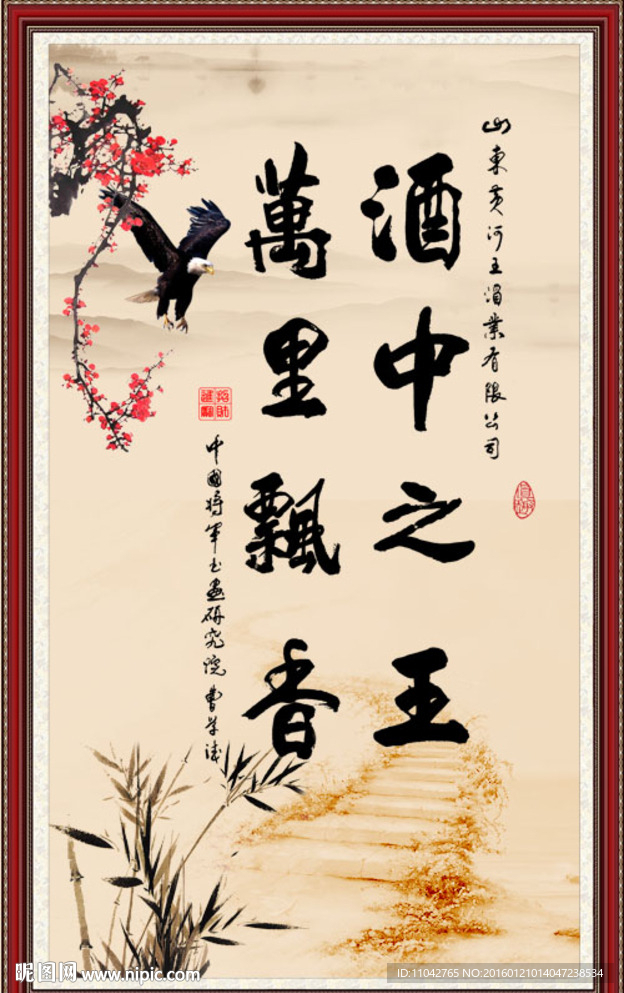 山东黄河王酒业有限公司
酒中之王
萬里飄香
中國将军书画研究院
昵图网 www.nipic.com
ID:11042765 NO:20160121014047238534